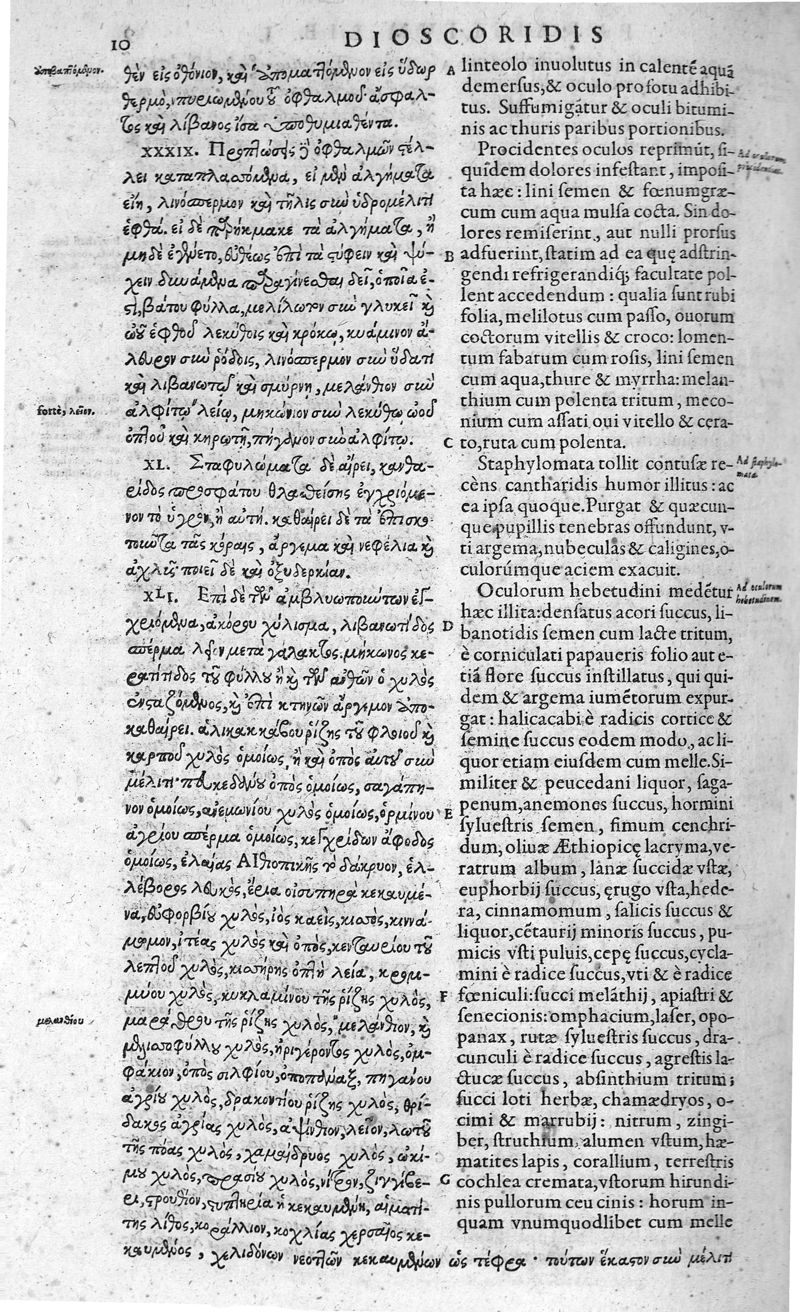 10 DIOSCORIDIS
ἀποβαπτόμενον.
θὲν εἰς ὀθόνιον, καὶ ἀποματτόμενον εἰς ὕδωρ
θερμὸ, πυριωμένου τοῦ ὀφθαλμοῦ· ἄσφαλ-
τος καὶ λίβανος ἴσα ὑποθυμιαθέντα.
XXXIX. Προπτώσεις δὲ ὀφθαλμῶν στέλ-
λει καταπλασσόμενα, εἰ μὲν ἀλγήματα
εἴη, λινόσπερμον καὶ τῆλις σὺν ὑδρομέλιτι
ἑφθά. εἰ δὲ παρήκμακε τὰ ἀλγήματα, ἢ
μηδὲ ἐγένετο, εὐθέως ἐπὶ τὰ στύφειν καὶ ψύ-
χειν δυνάμενα παραγίνεσθαι δεῖ, ὁποῖα ἐ-
στι, βάτου φύλλα, μελίλωτον σὺν γλυκεῖ καὶ
ὠοῦ ἑφθοῦ λεκύθοις καὶ κρόκῳ, κυάμινον ἄ-
λευρον σὺν ῥόδοις, λινόσπερμον σὺν ὕδατι
καὶ λιβανωτῷ καὶ σμύρνῃ, μελάνθιον σὺν
forte, λεῖον.
ἀλφίτῳ λείῳ, μηκώνιον σὺν λεκύθῳ ὠοῦ
ὀπτοῦ καὶ κηρωτῇ, πήγανον σὺν ἀλφίτῳ.
XL. Σταφυλώματα δὲ αἴρει, κανθα-
ρίδος προσφάτου θλασθείσης ἐγχριόμε-
νον τὸ ὑγρὸν, ἢ αὐτή. καθαίρει δὲ τὰ ἐπισκο-
ποῦντα τὰς κόρας, ἄργεμα καὶ νεφέλια καὶ
ἀχλῦς· ποιεῖ δὲ καὶ ὀξυδερκίαν.
XLI. Επὶ δὲ τῶν ἀμβλυωπούντων ἐγ-
χριόμενα, ἀκόρου χύλισμα, λιβανωτίδος
σπέρμα λεῖον μετὰ γάλακτος. μήκωνος κε-
ρατίτιδος τοῦ φύλλου ἢ καὶ τῶν ἀνθῶν ὁ χυλὸς
ἐνσταζόμενος, καὶ ἐπὶ κτηνῶν ἄργεμον ἀπο-
καθαίρει. ἁλικακκάβου ῥίζης τοῦ φλοιοῦ καὶ
καρποῦ χυλὸς ὁμοίως, ἢ καὶ ὀπὸς αὐτοῦ σὺν
μέλιτι· πευκεδάνου ὀπὸς ὁμοίως, σαγάπη-
νον ὁμοίως, ἀνεμωνίου χυλὸς ὁμοίως, ὁρμίνου
ἀγρίου σπέρμα ὁμοίως, κεγχρίδων ἄφοδος
ὁμοίως, ἐλαίας Αἰθιοπικῆς τὸ δάκρυον, ἑλ-
λέβορος λευκὸς, ἔρια οἰσυπηρὰ κεκαυμέ-
να, εὐφορβίου χυλὸς, ἰὸς καεὶς, κισσὸς, κιννά-
μωμον, ἰτέας χυλὸς καὶ ὀπὸς, κενταυρίου τοῦ
λεπτοῦ χυλὸς, κισσήρης ὀπτὴ λεία, κρομ-
μύου χυλὸς, κυκλαμίνου τῆς ῥίζης χυλὸς,
μελανθίου
μαράθρου τῆς ῥίζης χυλὸς, μελάνθιον, καὶ
μελισσοφύλλου χυλὸς, ἠριγέροντος χυλὸς, ὀμ-
φάκιον, ὀπὸς σιλφίου, ὀποπάναξ, πηγάνου
ἀγρίου χυλὸς, δρακοντίου ῥίζης χυλὸς, θρί-
δακος ἀγρίας χυλὸς, ἀψίνθιον, λεῖον, λωτοῦ
τῆς πόας χυλὸς, χαμαίδρυος χυλὸς, ὠκί-
μου χυλὸς, πρασίου χυλὸς, νίτρον, ζιγγίβε-
ρι, στρουθίον, στυπτηρία ἡ κεκαυμένη, αἱματί-
της λίθος, κοράλλιον, κοχλίας χερσαῖος κε-
καυμένος, χελιδόνων νεοττῶν κεκαυμένων ὡς τέφρα· τούτων ἕκαστον σὺν μέλιτι
A linteolo inuolutus in calentē aquā
demersus, & oculo pro fotu adhibi-
tus. Suffumigātur & oculi bitumi-
nis ac thuris paribus portionibus.
Procidentes oculos reprimūt, si-
Ad oculorum procidentias.
quidem dolores infestant, imposi-
ta hæc: lini semen & fœnumgræ-
cum cum aqua mulsa cocta. Sin do-
lores remiserint, aut nulli prorsus
B adfuerint, statim ad ea quę adstrin-
gendi refrigerandiq́; facultate pol-
lent accedendum: qualia sunt rubi
folia, melilotus cum passo, ouorum
coctorum vitellis & croco: lomen-
tum fabarum cum rosis, lini semen
cum aqua, thure & myrrha: melan-
thium cum polenta tritum, meco-
nium cum assati oui vitello & cera-
C to, ruta cum polenta.
Staphylomata tollit contusæ re-
Ad staphylo-
mata.
cēns cantharidis humor illitus: ac
ea ipsa quoque. Purgat & quæcun-
que pupillis tenebras offundunt, v-
ti argema, nubeculas & caligines, o-
culorúmque aciem exacuit.
Oculorum hebetudini medētur
Ad oculorum
hebetudinem.
hæc illita: densatus acori succus, li-
D banotidis semen cum lacte tritum,
è corniculati papaueris folio aut e-
tiā flore succus instillatus, qui qui-
dem & argema iumētorum expur-
gat: halicacabi è radicis cortice &
semine succus eodem modo, ac li-
quor etiam eiusdem cum melle. Si-
militer & peucedani liquor, saga-
E penum, anemones succus, hormini
syluestris semen, fimum cenchri-
dum, oliuæ Æthiopicę lacryma, ve-
ratrum album, lanæ succidæ vstæ,
euphorbij succus, ęrugo vsta, hede-
ra, cinnamomum, salicis succus &
liquor, cētaurij minoris succus, pu-
micis vsti puluis, cepę succus, cycla-
mini è radice succus, vti & è radice
F fœniculi: succi melāthij, apiastri &
senecionis: omphacium, laser, opo-
panax, rutæ syluestris succus, dra-
cunculi è radice succus, agrestis la-
ctucæ succus, absinthium tritum;
succi loti herbæ, chamædryos, o-
cimi & marrubij: nitrum, zingi-
ber, struthium, alumen vstum, hæ-
matites lapis, corallium, terrestris
G cochlea cremata, vstorum hirundi-
nis pullorum ceu cinis: horum in-
quam vnumquodlibet cum melle